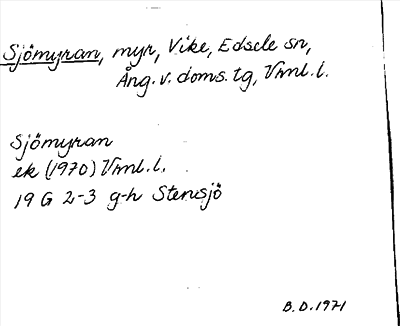 Sjömyran, myr, Vike, Edsele sn,
Ång. v. doms. tg, Vrnl. l.
Sjömyran
ek (1970) Vrnl. l.
19 G 2-3 g-h Stensjö
B.D. 1971